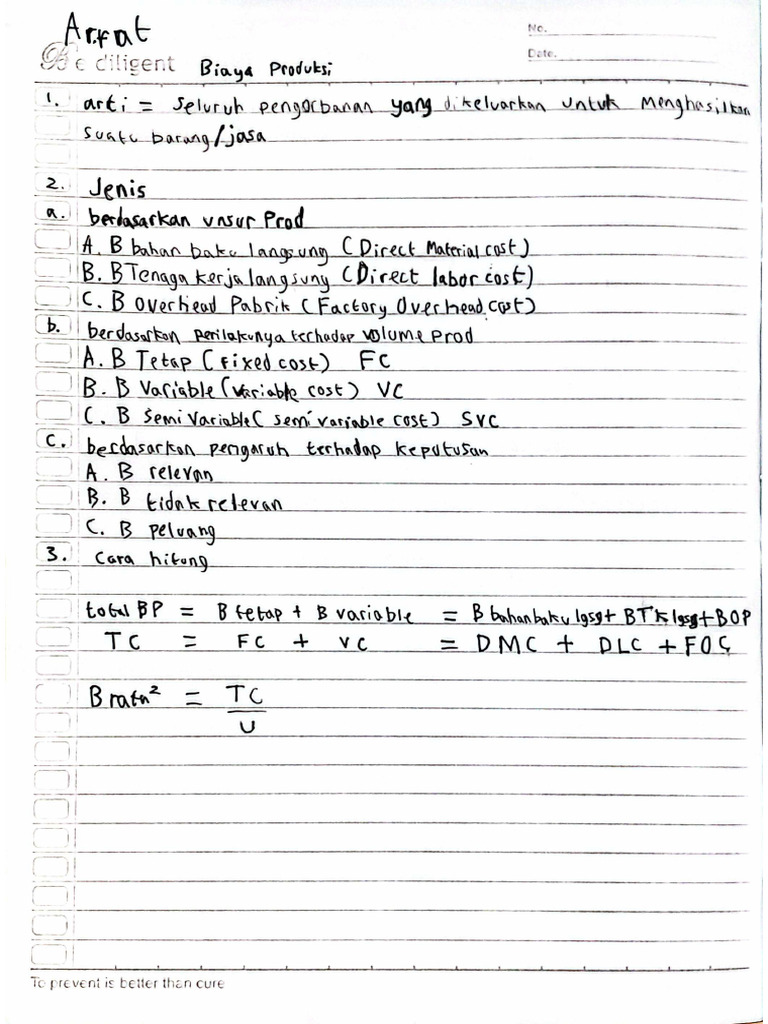 Arfat
No.
Be diligent Biaya Produksi
Date.
1. arti = Seluruh pengorbanan yang dikeluarkan untuk Menghasilkan
suatu barang/jasa
2. Jenis
a. berdasarkan unsur Prod
A. B bahan baku langsung (Direct Material cost)
B. B Tenaga kerja langsung (Direct labor cost)
C. B Overhead Pabrik (Factory Overhead cost)
b. berdasarkan perilakunya terhadap volume Prod
A. B Tetap (fixed cost) FC
B. B Variable (variable cost) VC
C. B Semi Variable (semi variable cost) SVC
C. berdasarkan pengaruh terhadap keputusan
A. B relevan
B. B tidak relevan
C. B peluang
3. Cara hitung
total BP = B tetap + B variable = B bahan baku lgsg + BTK lgsg + BOP
TC = FC + VC = DMC + DLC + FOC
B rata² = TC
U
To prevent is better than cure